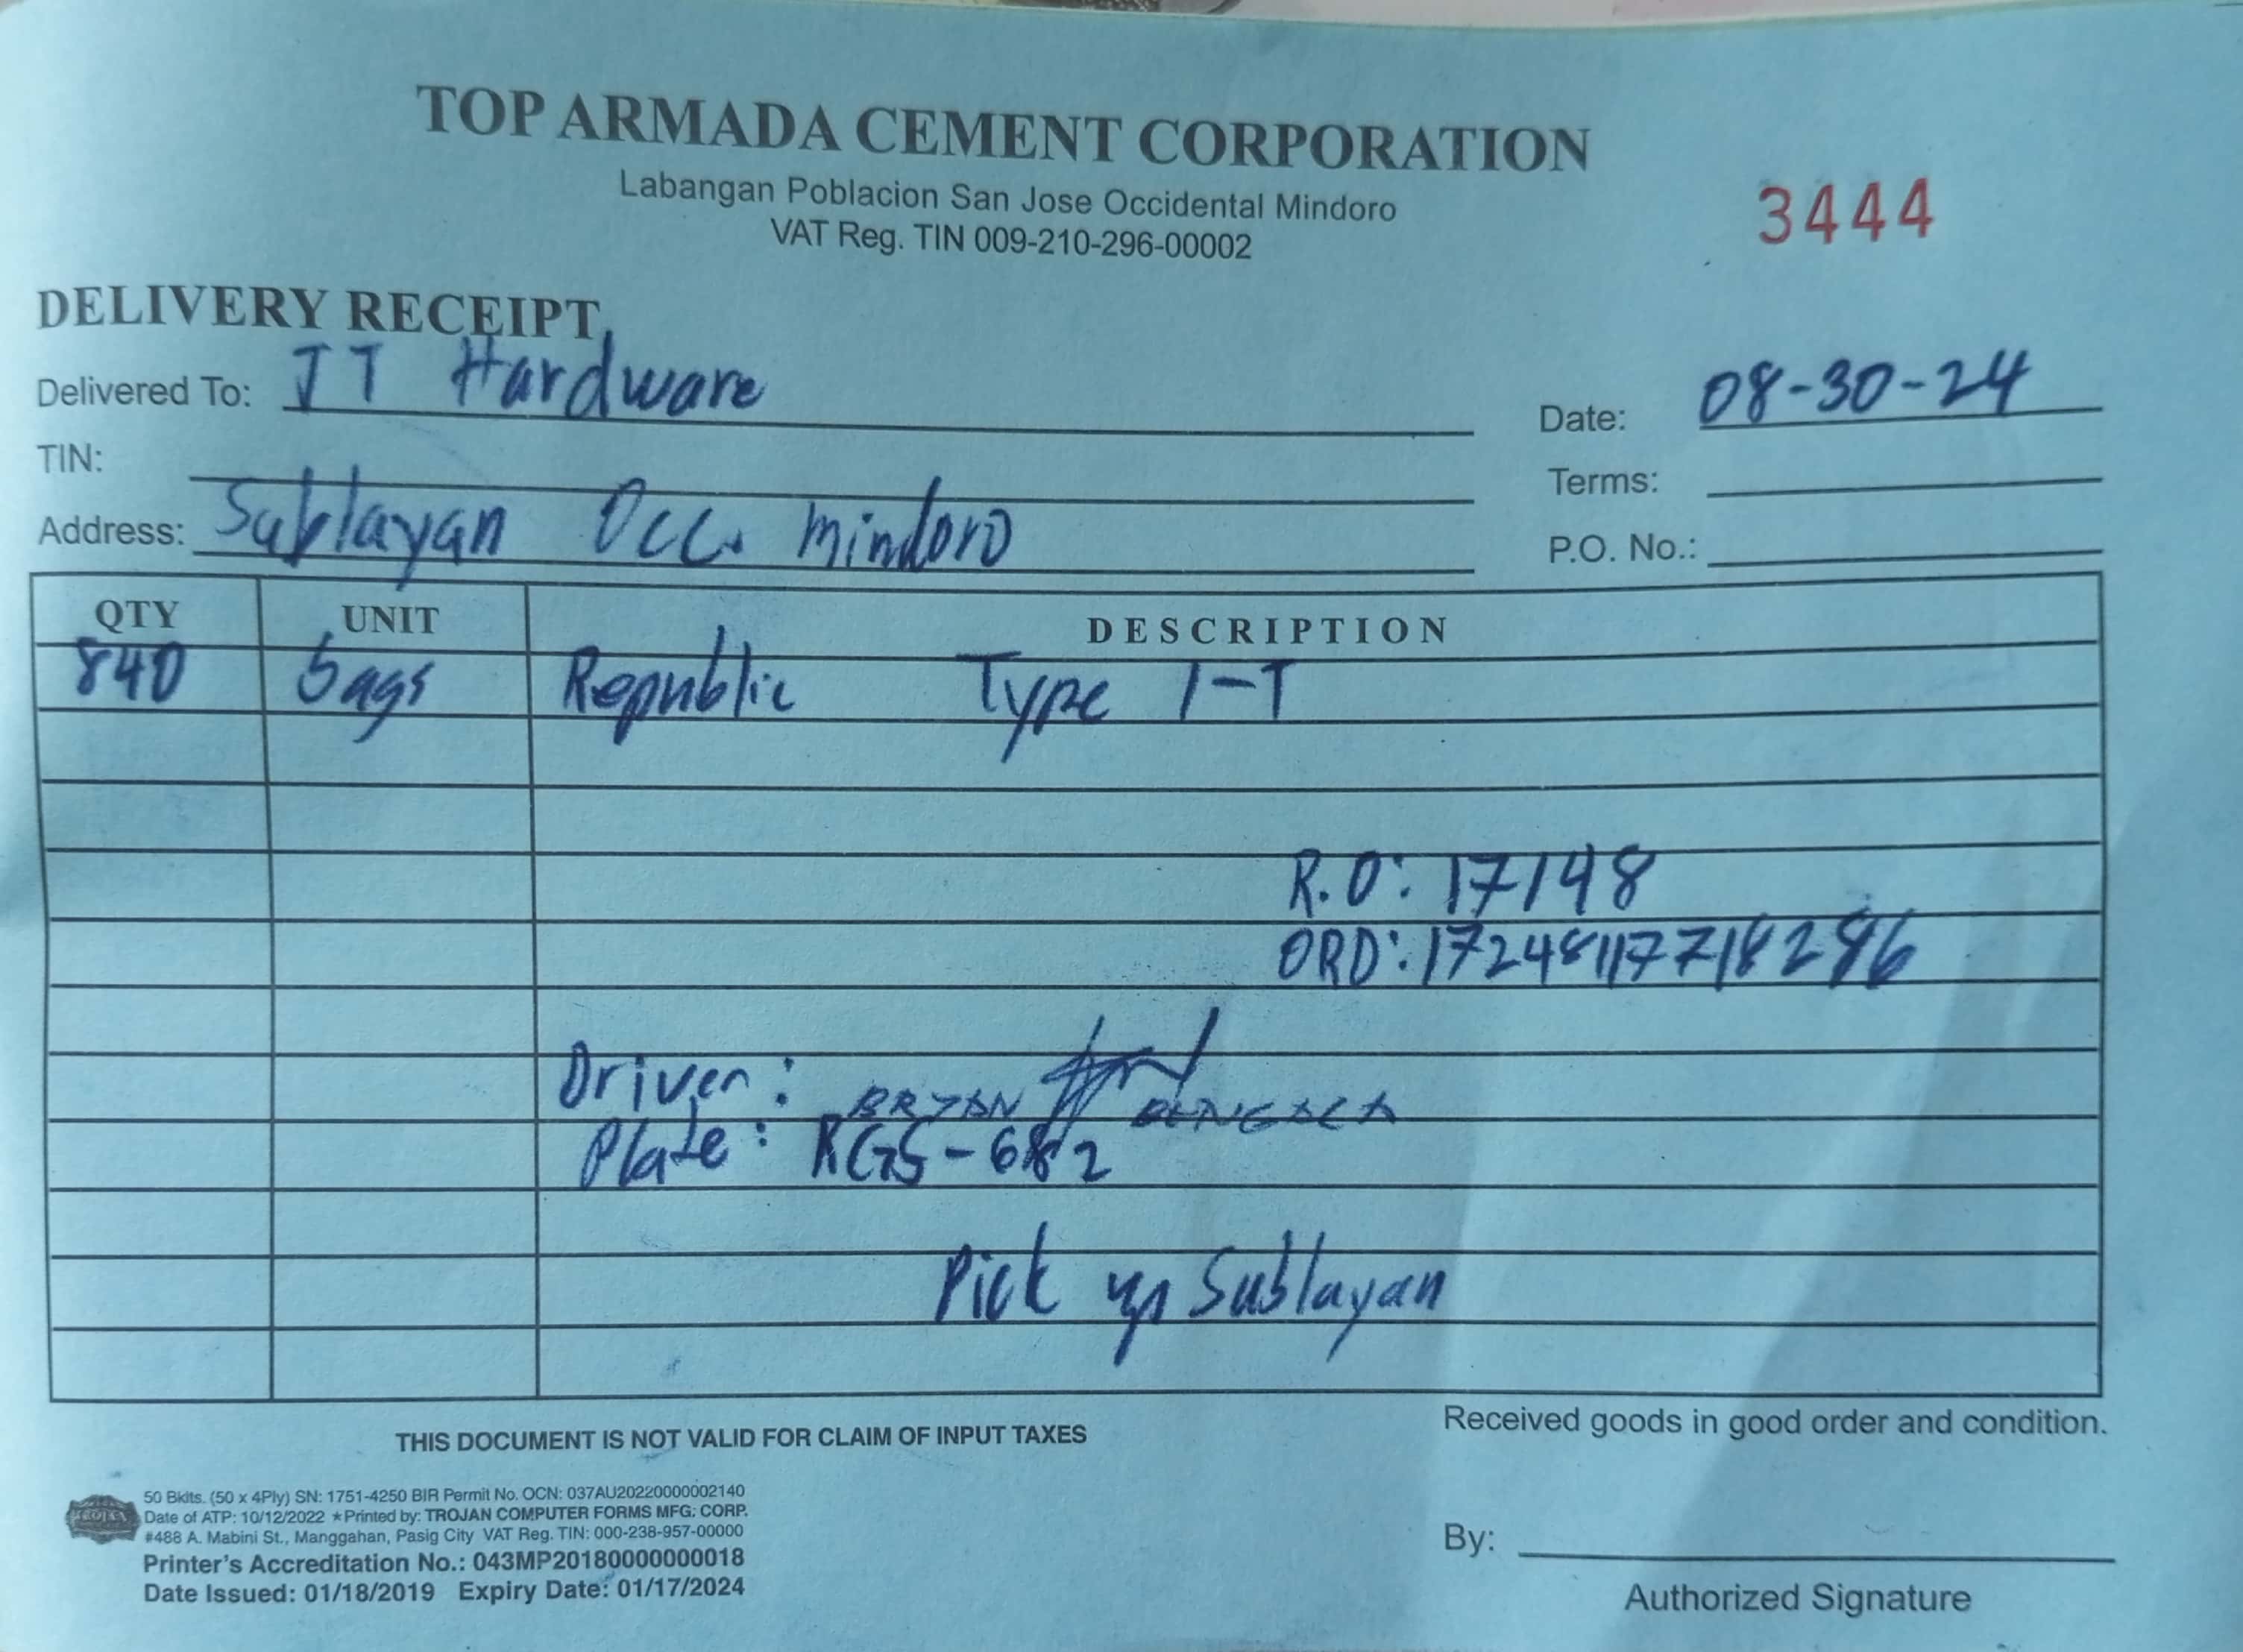 TOP ARMADA CEMENT CORPORATION
Labangan Poblacion San Jose Occidental Mindoro
VAT Reg. TIN 009-210-296-00002
3444
DELIVERY RECEIPT
Delivered To: JT Hardware
Date: 08-30-24
TIN:
Terms:
Address: Sablayan Occ. Mindoro
P.O. No.:
QTY UNIT DESCRIPTION
840 bags Republic Type 1-T
R.O: 17148
ORD: 17248117718286
Driver: BRYAN
Plate: RGS-682
Pick up Sablayan
THIS DOCUMENT IS NOT VALID FOR CLAIM OF INPUT TAXES
Received goods in good order and condition.
50 Bklts. (50 x 4Ply) SN: 1751-4250 BIR Permit No. OCN: 037AU20220000002140
Date of ATP: 10/12/2022 ★Printed by: TROJAN COMPUTER FORMS MFG. CORP.
#488 A. Mabini St., Manggahan, Pasig City VAT Reg. TIN: 000-238-957-00000
Printer's Accreditation No.: 043MP20180000000018
Date Issued: 01/18/2019 Expiry Date: 01/17/2024
TROJAN
By:
Authorized Signature